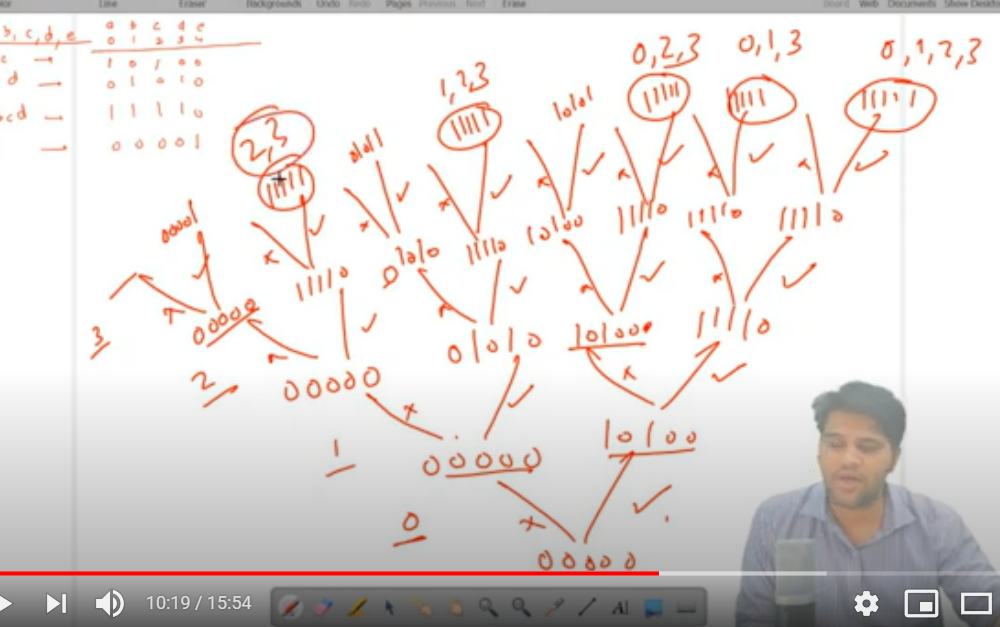 Line Eraser Backgrounds Undo Redo Pages Previous Next Erase Board Web Documents Show Deskt
b, c, d, e a b c d e
0 1 2 3 4
c → 1 0 1 0 0
d → 0 1 0 1 0
cd → 1 1 1 1 0
→ 0 0 0 0 1
0,2,3 0,1,3 0,1,2,3
1,2,3 10101 11111 11111
2,3 01011 11111
11111
00001 × ✓ × ✓ × ✓ × ✓ × ✓ × ✓ × ✓
11110 01010 11110 10100 11110 11110 11110
3 00000 ✓ ✓ ✓ × ✓
01010 10100 11110
2 00000 × ✓ × ✓
1 00000 10100
0 × ✓
00000
10:19 / 15:54
A